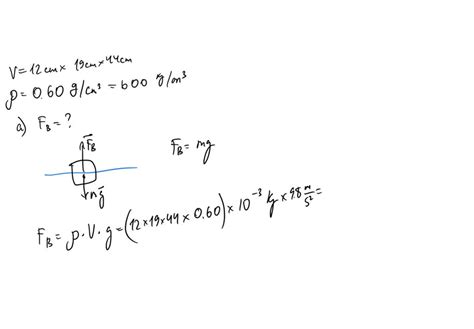 V = 12 cm × 19 cm × 44 cm
ρ = 0.60 g/cm³ = 600 g/cm³
a) F_B = ?
F⃗_B
F_B = mg
mg⃗
F_B = ρ · V · g = (12 × 19 × 44 × 0.60) × 10⁻³ kg × 9.8 m/s² =